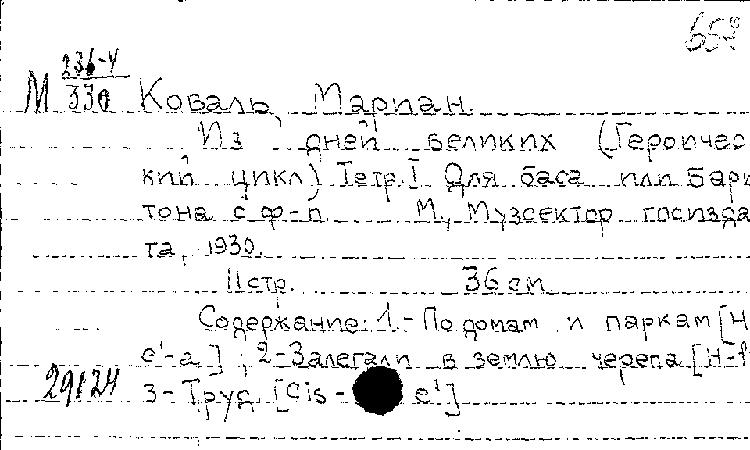 652
М 236-4/330 Коваль, Мариан.
Из дней великих (Героичес
кий цикл) Тетр. I Для баса или бари
тона с ф-п М, Музсектор госизда
та, 1930.
11 стр. 36 см
Содержание: 1.- По домам и паркам [H-
e'-a] ; 2-Залегали в землю черепа [H-f
29124 3- Труд [Cis - e']